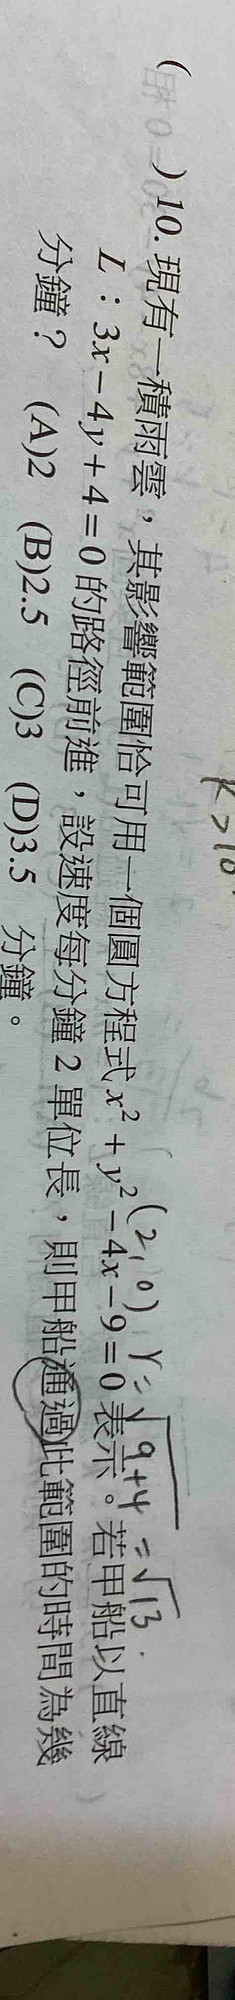 K>10
(2,0) r=√9+4=√13
( )10. 現有一積雨雲，其影響範圍恰可用一個圓方程式x²+y²-4x-9=0表示。若甲船以直線
L：3x-4y+4=0的路徑前進，設速度每分鐘2單位長，則甲船通過此範圍的時間為幾
分鐘？ (A)2 (B)2.5 (C)3 (D)3.5 分鐘。